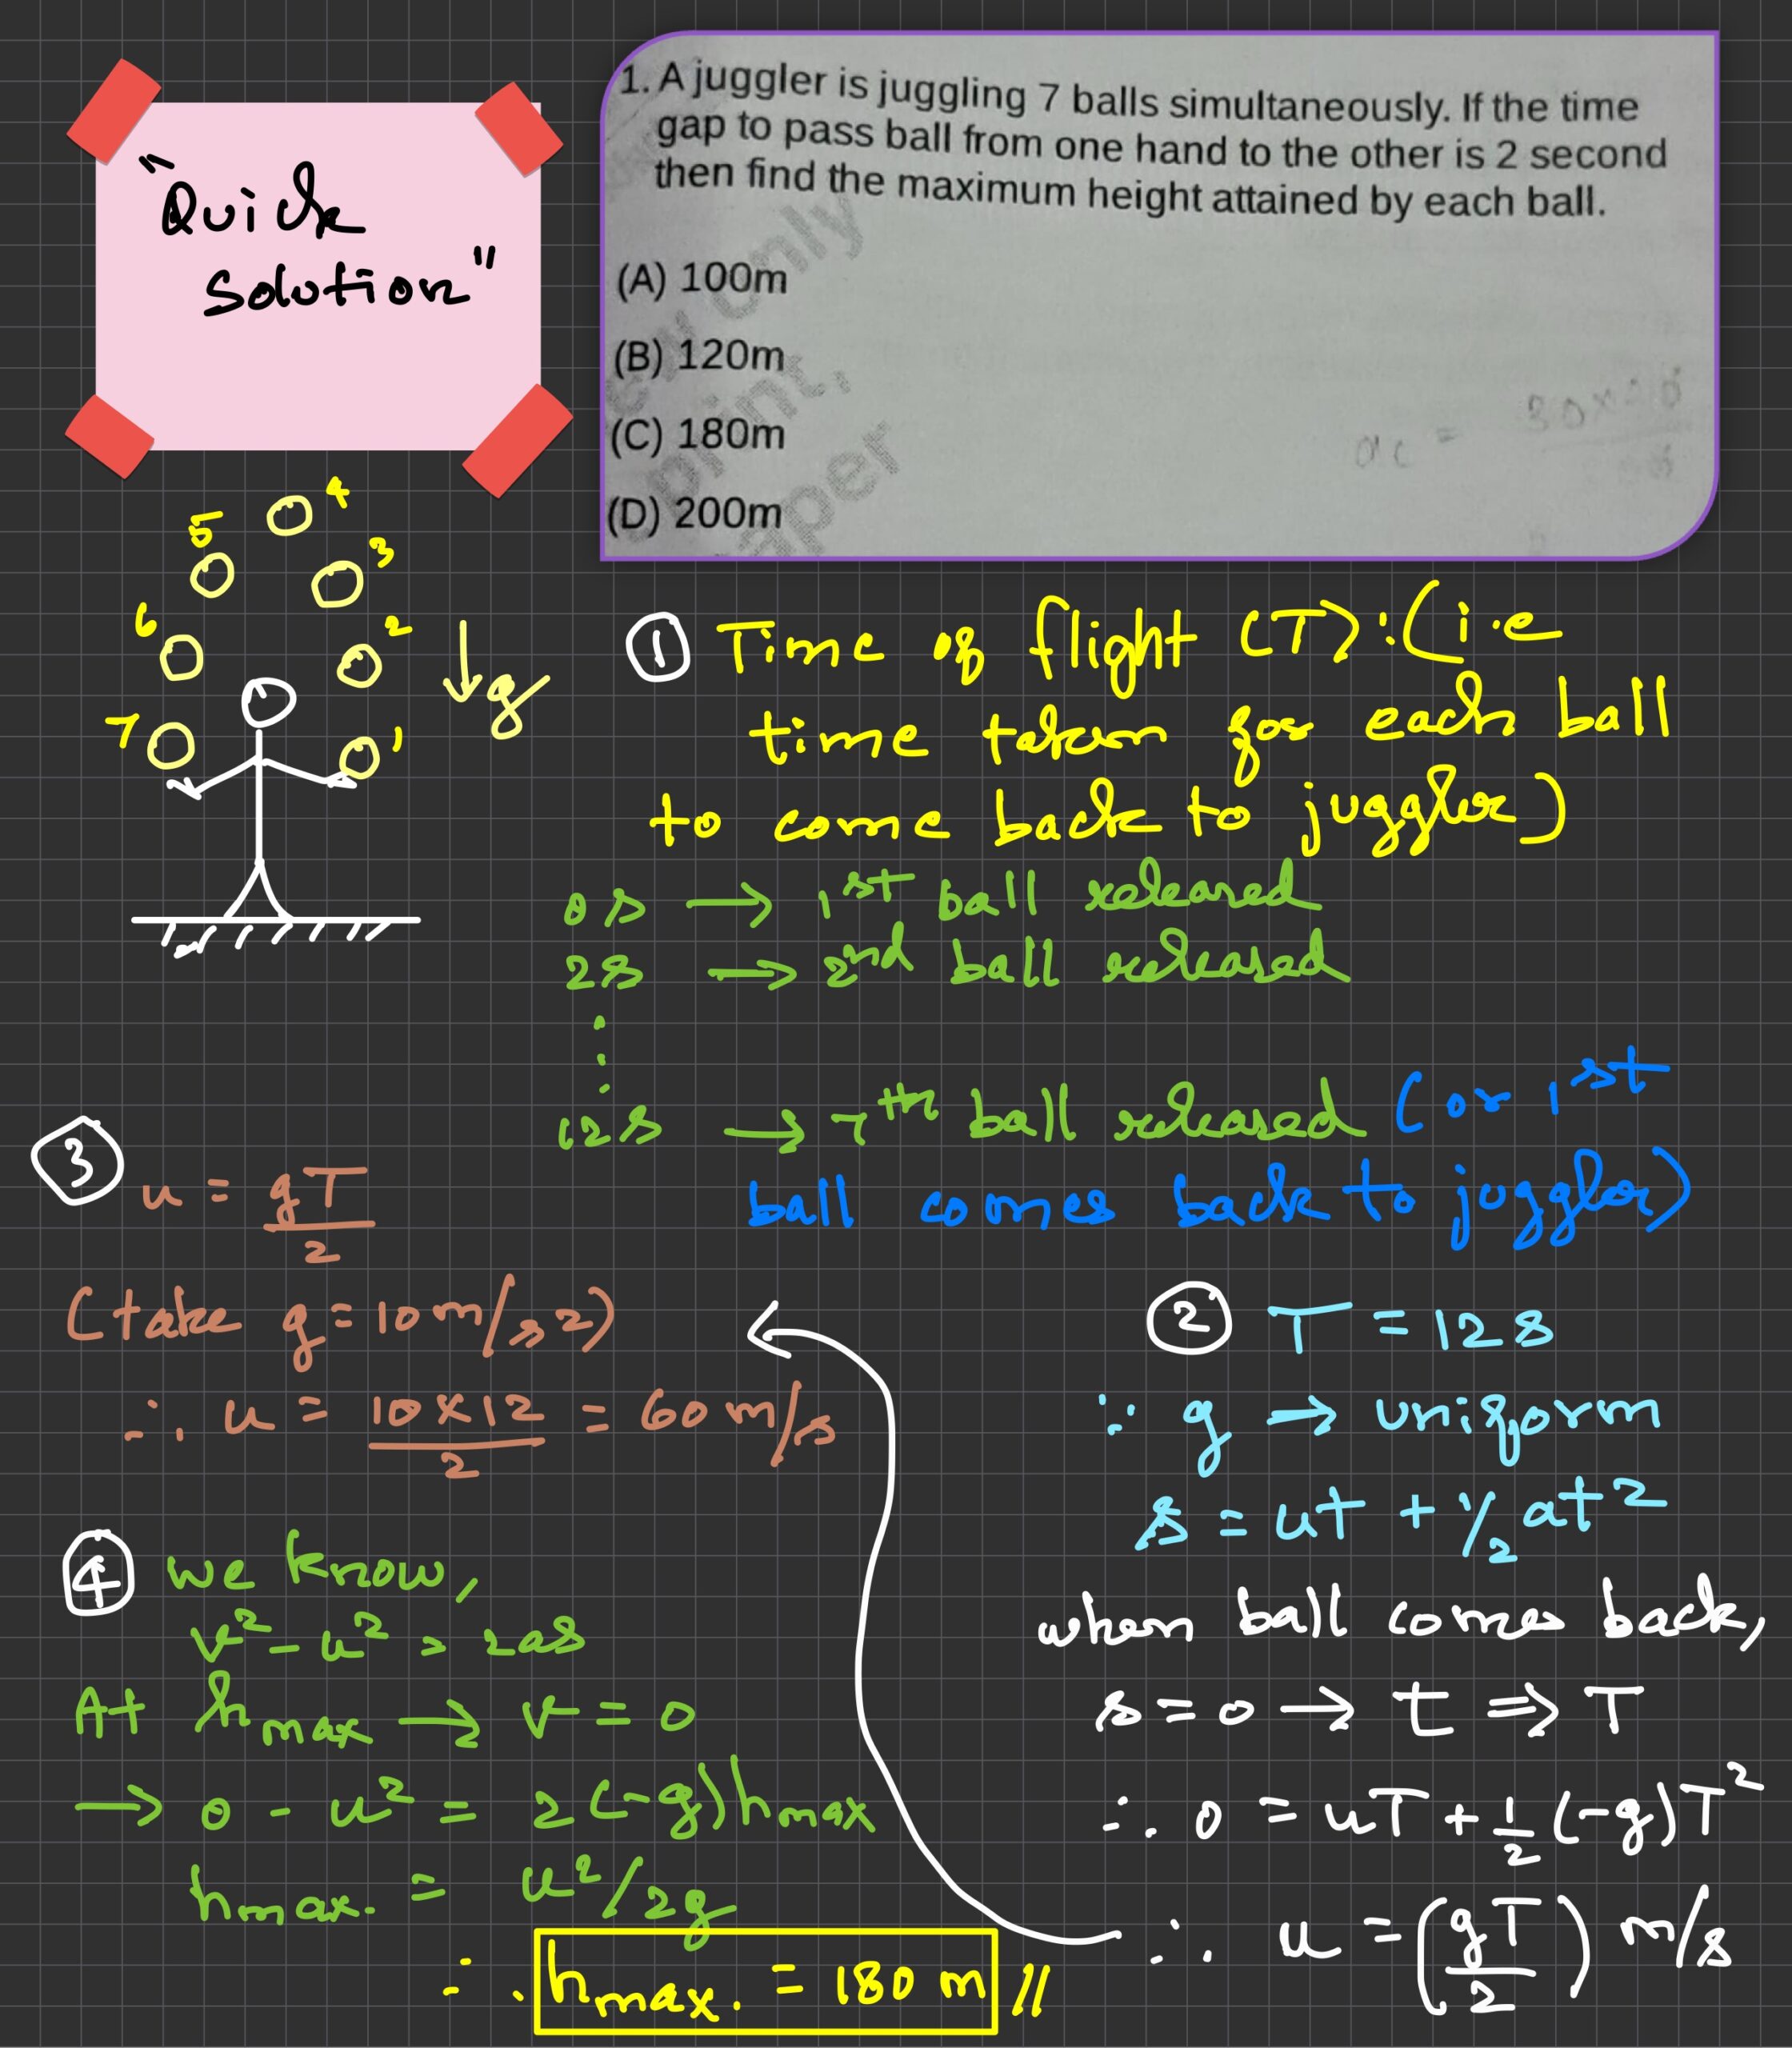 "Quick
solution"
1. A juggler is juggling 7 balls simultaneously. If the time
gap to pass ball from one hand to the other is 2 second
then find the maximum height attained by each ball.
(A) 100m
(B) 120m
(C) 180m
(D) 200m
only
print,
aper
4
5
3
6
2
7
1
↓g
① Time of flight (T): (i.e
time taken for each ball
to come back to juggler)
0s → 1st ball released
2s → 2nd ball released
⋮
12s → 7th ball released (or 1st
ball comes back to juggler)
② T = 12s
∵ g → uniform
s = ut + 1/2 at²
when ball comes back,
s = 0 → t ⇒ T
∴ 0 = uT + 1/2 (-g)T²
∴ u = (gT/2) m/s
③ u = gT/2
(take g = 10m/s2)
∴ u = 10×12/2 = 60 m/s
④ We know,
v² - u² = 2as
At hmax → v = 0
→ 0 - u² = 2(-g)hmax
hmax. = u²/2g
∴ hmax. = 180 m //